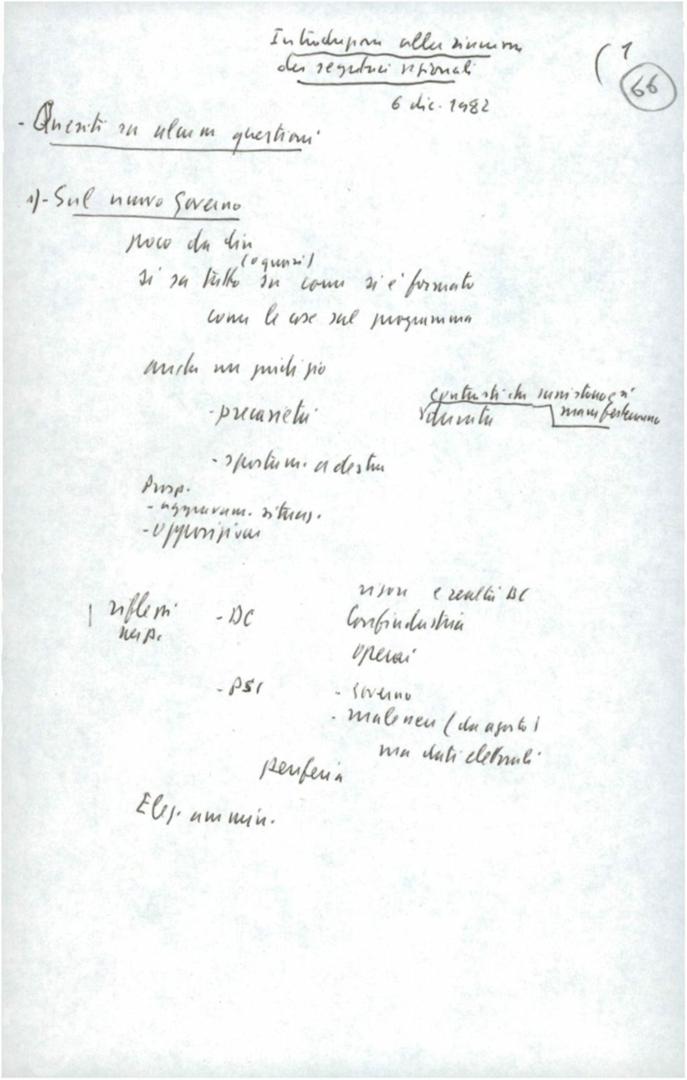 Introduzione alla riunione
dei segretari regionali
( 1
66
6 dic. 1982
- Quesiti su alcune questioni
1) - Sul nuovo Governo
poco da dire
(o quasi)
si sa tutto su come si è formato
come le cose sul programma
anche un giudizio
- precarietà
contrasti che
durata
manifestarono
- spostam. a destra
Prosp.
- aggravam. situaz.
- opposizione
riflessi
- DC
e realtà DC
Confindustria
operai
- PSI
- Governo
- malessere (da agosto)
ma dati elettorali
periferia
Elez. ammin.